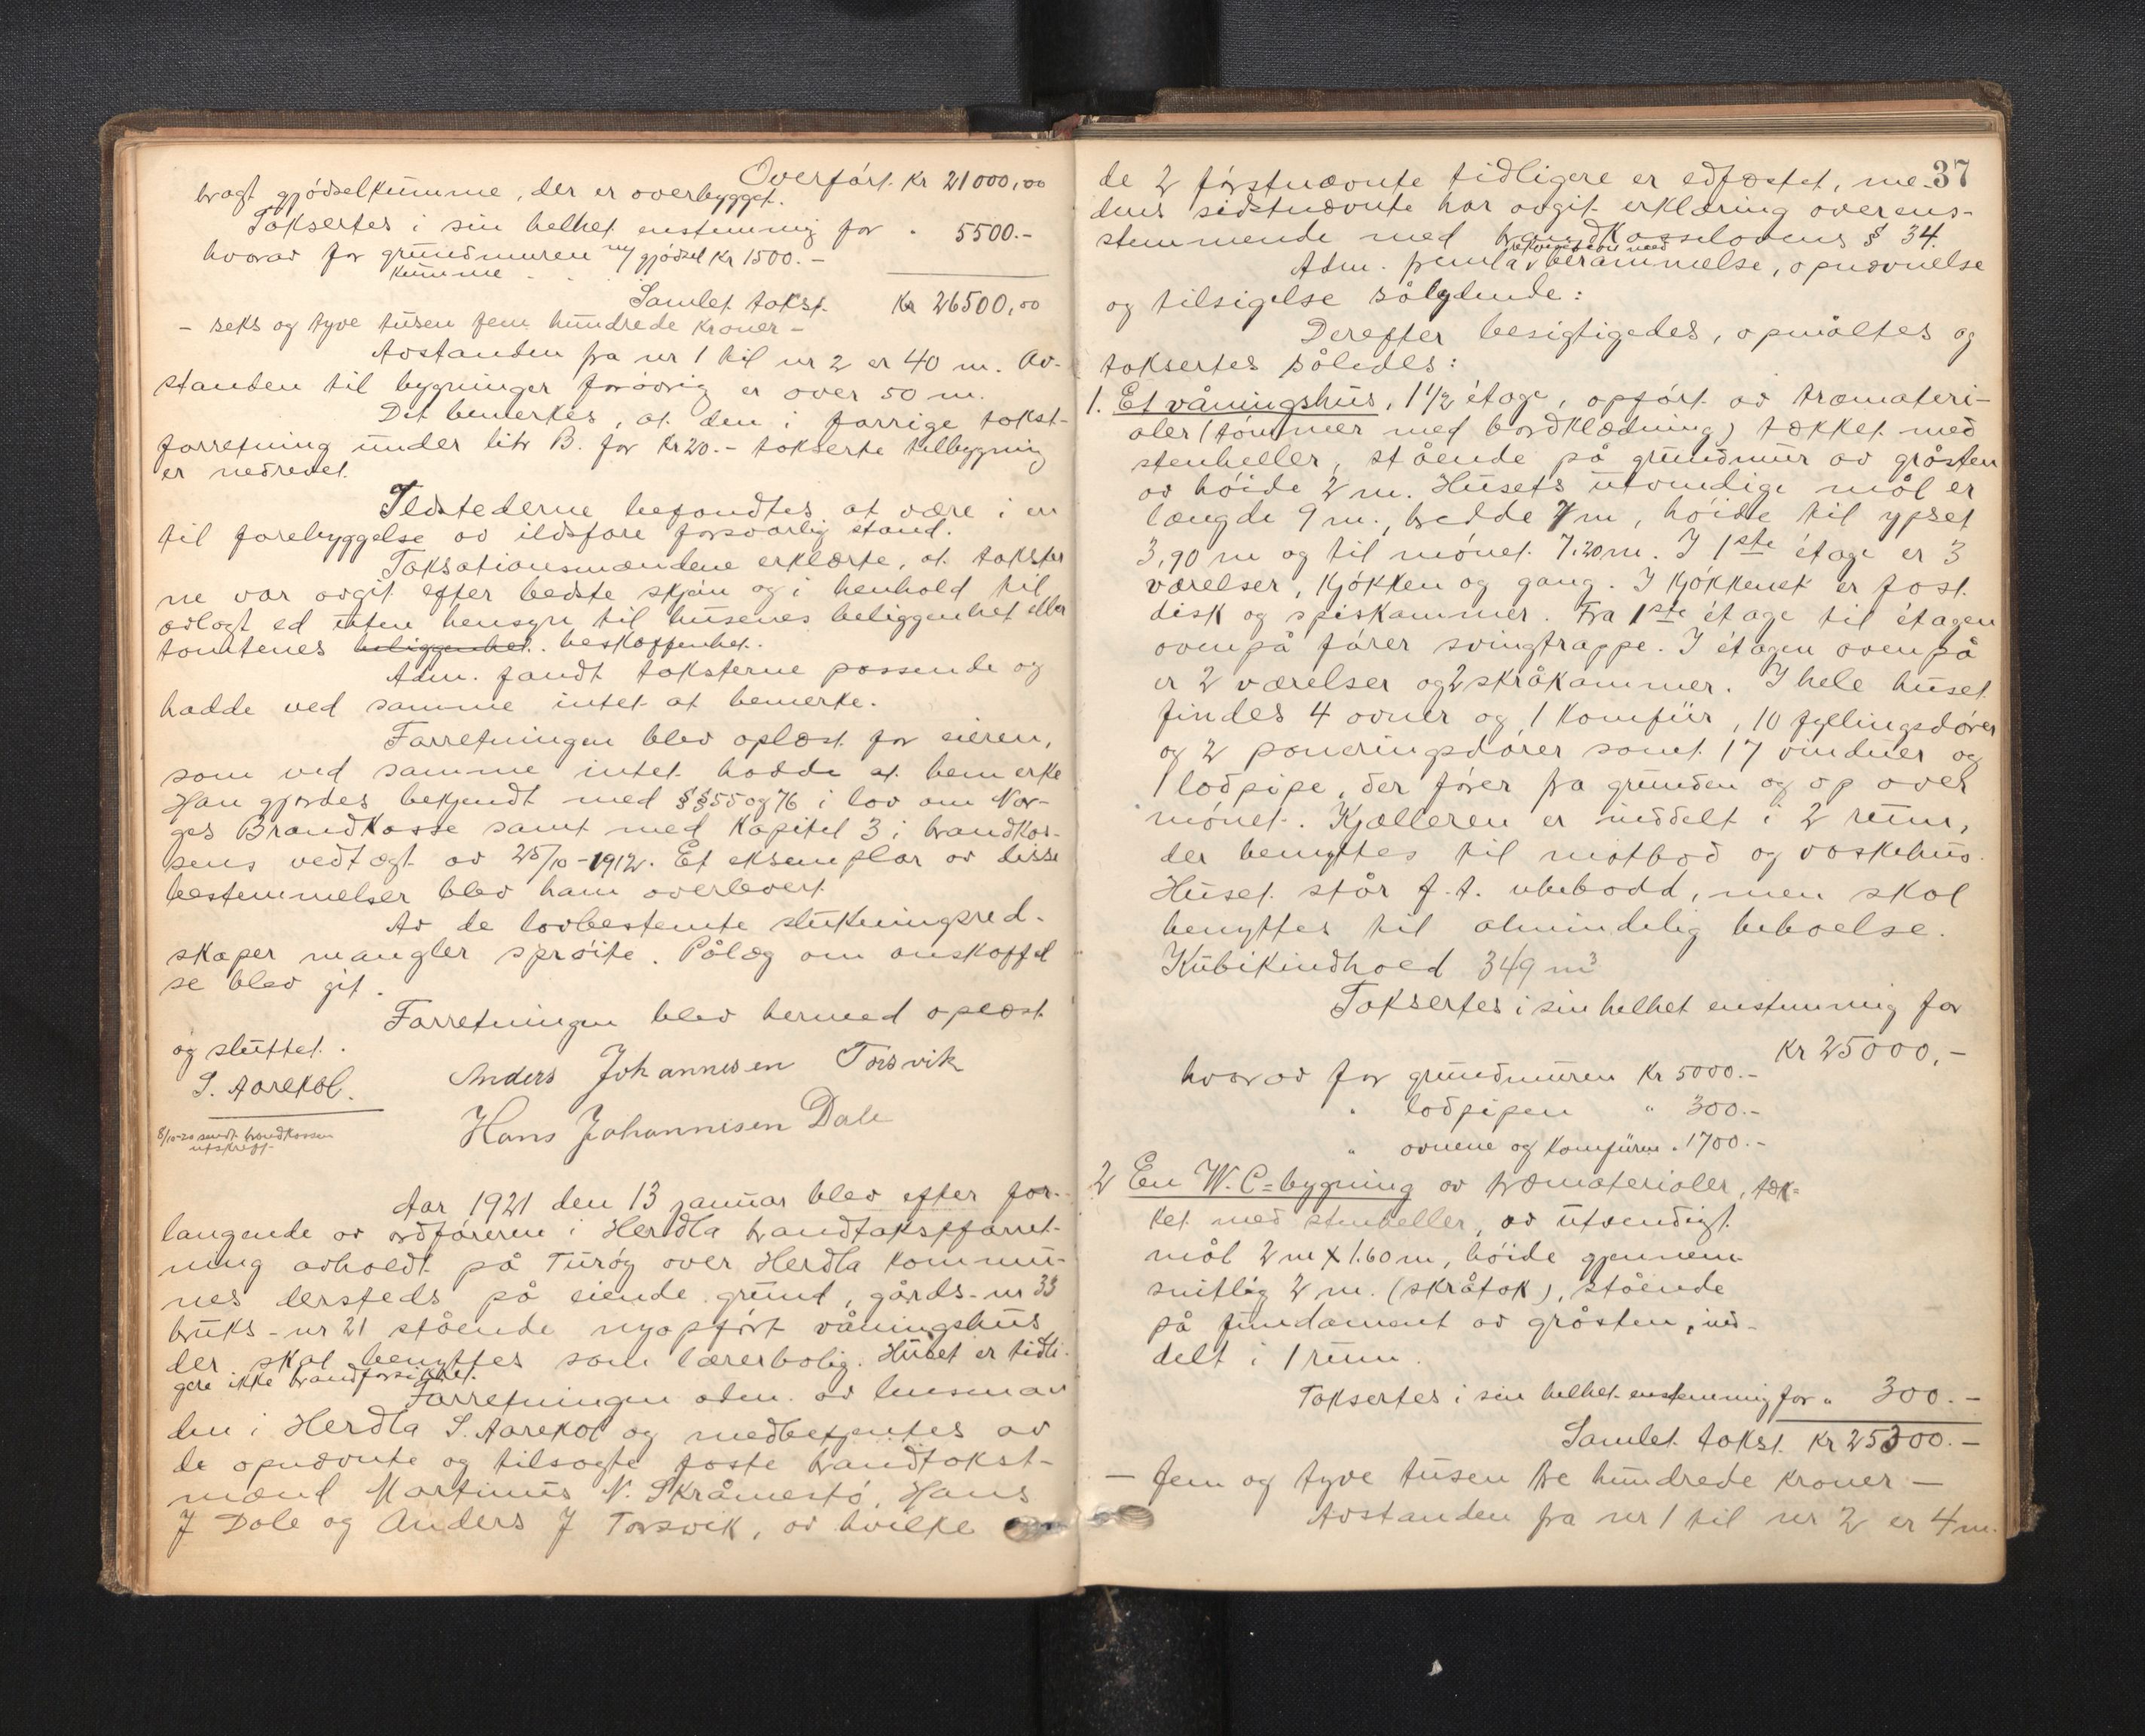 Overført kr 21000,00
bragt gjødselkumme, der er overbygget.
Taksertes i sin helhet enstemmig for " 5500.-
hvorav for grundmuren m/ gjødsel kr 1500.-
kumme
Samlet takst kr 26500,00
- seks og tyve tusen fem hundrede kroner -
Avstanden fra nr 1 til nr 2 er 40 m. Av-
standen til bygninger forøvrig er over 50 m.
Det bemerkes, at den i forrige takst-
forretning under litr B. for kr 20.- takserte tilbygning
er nedrevet.
Ildstederne befandtes at være i en
til forebyggelse av ildsfare forsvarlig stand.
Taksationsmændene erklærte, at takster
ne var avgit efter bedste skjøn og i henhold til
avlagt ed uten hensyn til husenes beliggenhet eller
tomtenes beliggenhet. beskaffenhet.
Adm. fandt taksterne passende og
hadde ved samme intet at bemerke.
Forretningen blev oplæst for eieren,
som ved samme intet hadde at bemerke
Han gjordes bekjendt med §§ 55 og 76 i lov om Nor-
ges Brandkasse samt med kapitel 3 i brandkas-
sens vedtægt av 25/10-1912. Et eksemplar av disse
bestemmelser blev ham overlevert.
Av de lovbestemte slukningsred-
skaper mangler sprøite. Pålæg om anskaffel
se blev git.
Forretningen blev hermed oplæst
og sluttet.
S. Aarekol. Anders Johannesen Torsvik
Hans Johannesen Dale
8/10-20 sendt brandkassen
utskrift
Aar 1921 den 13 januar blev efter for-
langende av ordføreren i Herdla brandtakstforret-
ning avholdt på Turøy over Herdla kommu-
nes dersteds på eiende grund, gårds-nr 33
bruks-nr 21 stående nyopført våningshus
der skal benyttes som lærerbolig. Huset er tidli-
gere ikke brandforsikret.
Forretningen adm. av lensman
den i Herdla S. Aarekol og medbetjentes av
de opnævnte og tilsagte faste brandtakst-
mænd Martinus N. Skråmestø, Hans
J Dale og Anders J Torsvik, av hvilke
37
de 2 førstnævnte tidligere er edfæstet, me-
dens sidstnævnte har avgit erklæring overens-
stemmende med brandkasselovens § 34.
rekvisition med
Adm. fremla berammelse, opnævnelse
og tilsigelse sålydende:
Derefter besigtigedes, opmåltes og
taksertes således:
1. Et våningshus, 1 1/2 étage, opført av træmateri-
aler (tømmer med bordklædning) tækket med
stenheller, stående på grundmur av gråsten
av høide 2 m. Husets utvendige mål er
længde 9 m., bredde 7 m, høide til ypset
3,90 m og til mønet 7.20 m. I 1ste étage er 3
værelser, kjøkken og gang. I kjøkkenet er fast
disk og spiskammer. Fra 1ste étage til étagen
ovenpå fører svingtrappe. I étagen ovenpå
er 2 værelser og 2 skråkammer. I hele huset
findes 4 ovner og 1 komfür, 10 fyllingsdører
og 2 paneringsdører samt 17 vinduer og
1 lodpipe, der fører fra grunden og op over
mønet. Kjælleren er inddelt i 2 rum,
der benyttes til matbod og vaskehus.
Huset står f. t. ubebodd, men skal
benyttes til almindelig beboelse.
Kubikindhold 349 m3
Taksertes i sin helhet enstemmig for
kr 25000,-
hvorav for grundmuren kr 5000.-
" lodpipen " 300.-
" ovnene og komfüren " 1700.-
2 En W.C-bygning av træmaterialer, tæk-
ket med stenheller, av utvendigt
mål 2 m x 1.60 m, høide gjennem-
snitlig 2 m. (skråtak), stående
på fundament av gråsten, ind-
delt i 1 rum.
Taksertes i sin helhet enstemmig for " 300.-
Samlet takst kr 25300.-
- fem og tyve tusen tre hundrede kroner -
Avstanden fra nr 1 til nr 2 er 4 m.